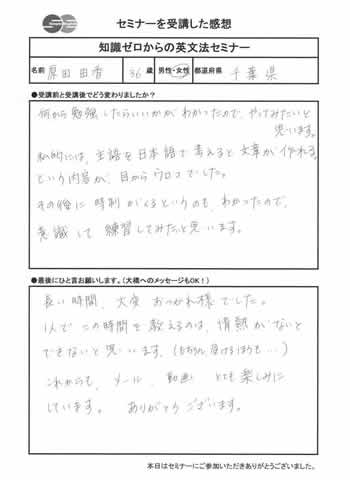 セミナーを受講した感想
知識ゼロからの英文法セミナー
名前 原田 由香 36 歳 男性・女性 都道府県 千葉県
●受講前と受講後でどう変わりましたか?
何から勉強したらいいかが わかったので、やってみたいと
思います。
私的には、主語を日本語で考えると文章が作れる。
という内容が、目からウロコでした。
その後に時制がくるというのも、わかったので、
意識して 練習してみたいと思います。
●最後にひと言お願いします。(大橋へのメッセージもOK!)
長い時間、大変 おつかれ様でした。
1人で この時間を 教えるのは、情熱がないと
できないと思います。(もちろん 受けるほうも…)
これからも、メール、動画 とても楽しみに
しています。 ありがとうございます。
本日はセミナーにご参加いただきありがとうございました。